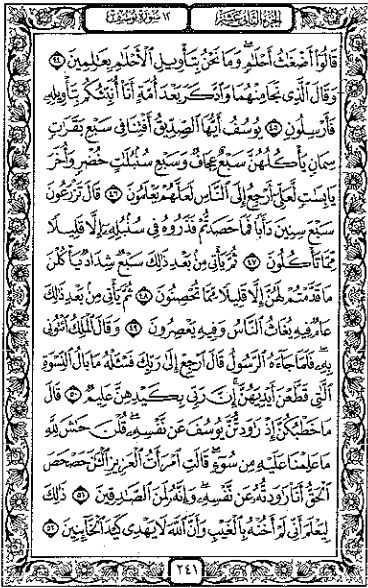 الجزء الثاني عشر ١٢ سورة يوسف
قَالُوٓا۟ أَضْغَـٰثُ أَحْلَـٰمٍ وَمَا نَحْنُ بِتَأْوِيلِ ٱلْأَحْلَـٰمِ بِعَـٰلِمِينَ ٤٤
وَقَالَ ٱلَّذِى نَجَا مِنْهُمَا وَٱدَّكَرَ بَعْدَ أُمَّةٍ أَنَا۠ أُنَبِّئُكُم بِتَأْوِيلِهِۦ
فَأَرْسِلُونِ ٤٥ يُوسُفُ أَيُّهَا ٱلصِّدِّيقُ أَفْتِنَا فِى سَبْعِ بَقَرَٰتٍ
سِمَانٍ يَأْكُلُهُنَّ سَبْعٌ عِجَافٌ وَسَبْعِ سُنۢبُلَـٰتٍ خُضْرٍ وَأُخَرَ
يَابِسَـٰتٍ لَّعَلِّىٓ أَرْجِعُ إِلَى ٱلنَّاسِ لَعَلَّهُمْ يَعْلَمُونَ ٤٦ قَالَ تَزْرَعُونَ
سَبْعَ سِنِينَ دَأَبًا فَمَا حَصَدتُّمْ فَذَرُوهُ فِى سُنۢبُلِهِۦٓ إِلَّا قَلِيلًا
مِّمَّا تَأْكُلُونَ ٤٧ ثُمَّ يَأْتِى مِنۢ بَعْدِ ذَٰلِكَ سَبْعٌ شِدَادٌ يَأْكُلْنَ
مَا قَدَّمْتُمْ لَهُنَّ إِلَّا قَلِيلًا مِّمَّا تُحْصِنُونَ ٤٨ ثُمَّ يَأْتِى مِنۢ بَعْدِ ذَٰلِكَ
عَامٌ فِيهِ يُغَاثُ ٱلنَّاسُ وَفِيهِ يَعْصِرُونَ ٤٩ وَقَالَ ٱلْمَلِكُ ٱئْتُونِى
بِهِۦ فَلَمَّا جَآءَهُ ٱلرَّسُولُ قَالَ ٱرْجِعْ إِلَىٰ رَبِّكَ فَسْـَٔلْهُ مَا بَالُ ٱلنِّسْوَةِ
ٱلَّـٰتِى قَطَّعْنَ أَيْدِيَهُنَّ إِنَّ رَبِّى بِكَيْدِهِنَّ عَلِيمٌ ٥٠ قَالَ
مَا خَطْبُكُنَّ إِذْ رَٰوَدتُّنَّ يُوسُفَ عَن نَّفْسِهِۦ قُلْنَ حَـٰشَ لِلَّهِ
مَا عَلِمْنَا عَلَيْهِ مِن سُوٓءٍ قَالَتِ ٱمْرَأَتُ ٱلْعَزِيزِ ٱلْـَٔـٰنَ حَصْحَصَ
ٱلْحَقُّ أَنَا۠ رَٰوَدتُّهُۥ عَن نَّفْسِهِۦ وَإِنَّهُۥ لَمِنَ ٱلصَّـٰدِقِينَ ٥١ ذَٰلِكَ
لِيَعْلَمَ أَنِّى لَمْ أَخُنْهُ بِٱلْغَيْبِ وَأَنَّ ٱللَّهَ لَا يَهْدِى كَيْدَ ٱلْخَآئِنِينَ ٥٢
٢٤١